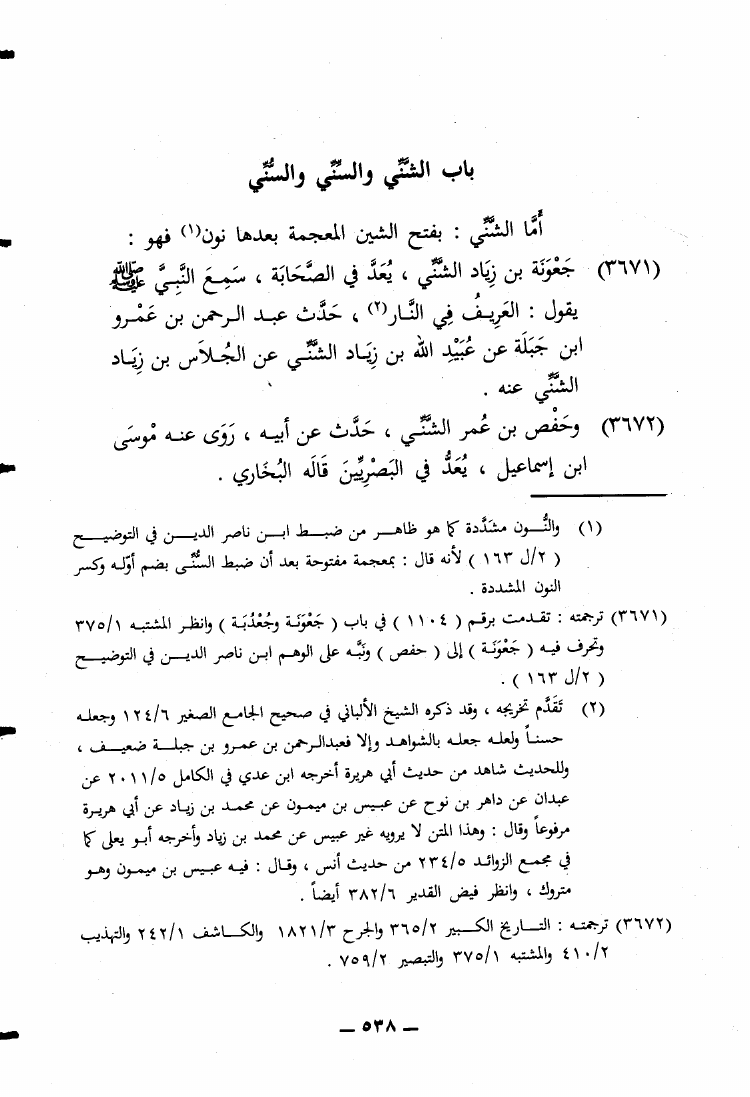 باب الشَّنِّي والسِّنِّي والسُّنِّي
أَمَّا الشَّنِّي : بفتح الشين المعجمة بعدها نون(١) فهو :
(٣٦٧١) جَعْوَنَة بن زِيَاد الشَّنِّي ، يُعَدُّ في الصَّحَابَة ، سَمِعَ النَّبِيَّ ﷺ
يقول : العَرِيفُ فِي النَّار(٢) ، حَدَّث عبد الرحمن بن عَمْرو
ابن جَبَلَة عن عُبَيْدِ الله بن زِيَاد الشَّنِّي عن الجُلاَس بن زِيَاد
الشَّنِّي عنه .
(٣٦٧٢) وحَفْص بن عُمر الشَّنِّي ، حَدَّث عن أبيه ، رَوَى عنه مُوسَى
ابن إسماعيل ، يُعَدُّ في البَصْرِيِّينَ قَالَه البُخَاري .
(١) والنُّون مشدَّدة كما هو ظاهر من ضبط ابن ناصر الدين في التوضيح
( ٢/ل ١٦٣ ) لأنه قال : بمعجمة مفتوحة بعد أن ضبط السُّنِّى بضم أوّله وكسر
النون المشددة .
(٣٦٧١) ترجمته : تقدمت برقم ( ١١٠٤ ) في باب ( جَعْوَنَة وجُعْدُبَة ) وانظر المشتبه ٣٧٥/١
وتحرف فيه ( جَعْوَنَة ) إلى ( حفص ) ونَبَّه على الوهم ابن ناصر الدين في التوضيح
( ٢/ل ١٦٣ ) .
(٢) تَقَدَّم تخريجه ، وقد ذكره الشيخ الألباني في صحيح الجامع الصغير ١٢٤/٦ وجعله
حسناً ولعله جعله بالشواهد وإلا فعبدالرحمن بن عمرو بن جبلة ضعيف ،
وللحديث شاهد من حديث أبي هريرة أخرجه ابن عدي في الكامل ٢٠١١/٥ عن
عبدان عن داهر بن نوح عن عبيس بن ميمون عن محمد بن زياد عن أبي هريرة
مرفوعاً وقال : وهذا المتن لا يرويه غير عبيس عن محمد بن زياد وأخرجه أبو يعلى كما
في مجمع الزوائد ٢٣٤/٥ من حديث أنس ، وقال : فيه عبيس بن ميمون وهو
متروك ، وانظر فيض القدير ٣٨٢/٦ أيضاً .
(٣٦٧٢) ترجمته : التاريخ الكبير ٣٦٥/٢ والجرح ١٨٢١/٣ والكاشف ٢٤٢/١ والتهذيب
٤١٠/٢ والمشتبه ٣٧٥/١ والتبصير ٧٥٩/٢ .
— ٥٣٨ —